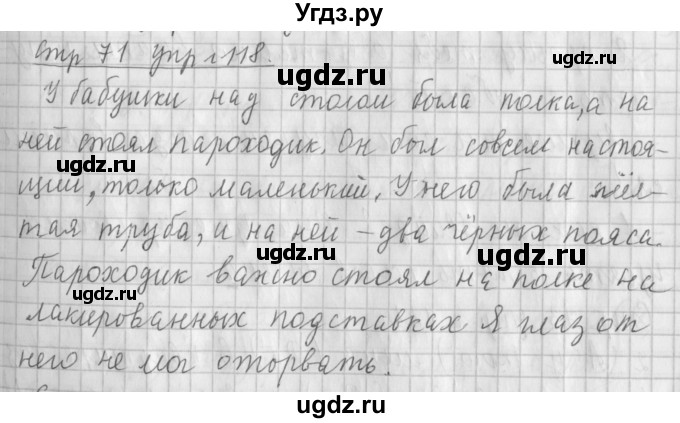 Угдз.ру
стр 71 упр 118.
ugdz.ru
ugdz.ru
У бабушки над столом была полка, а на
ней стоял пароходик. Он был совсем настоя-
ugdz.ru
щий, только маленький. У него была жёл-
ugdz.ru
тая труба, и на ней - два чёрных пояса.
ugdz.ru
Пароходик важно стоял на полке на
ugdz.ru
ugdz.ru
лакированных подставках. Я глаз от
него не мог оторвать.
ugdz.ru
ugdz.ru